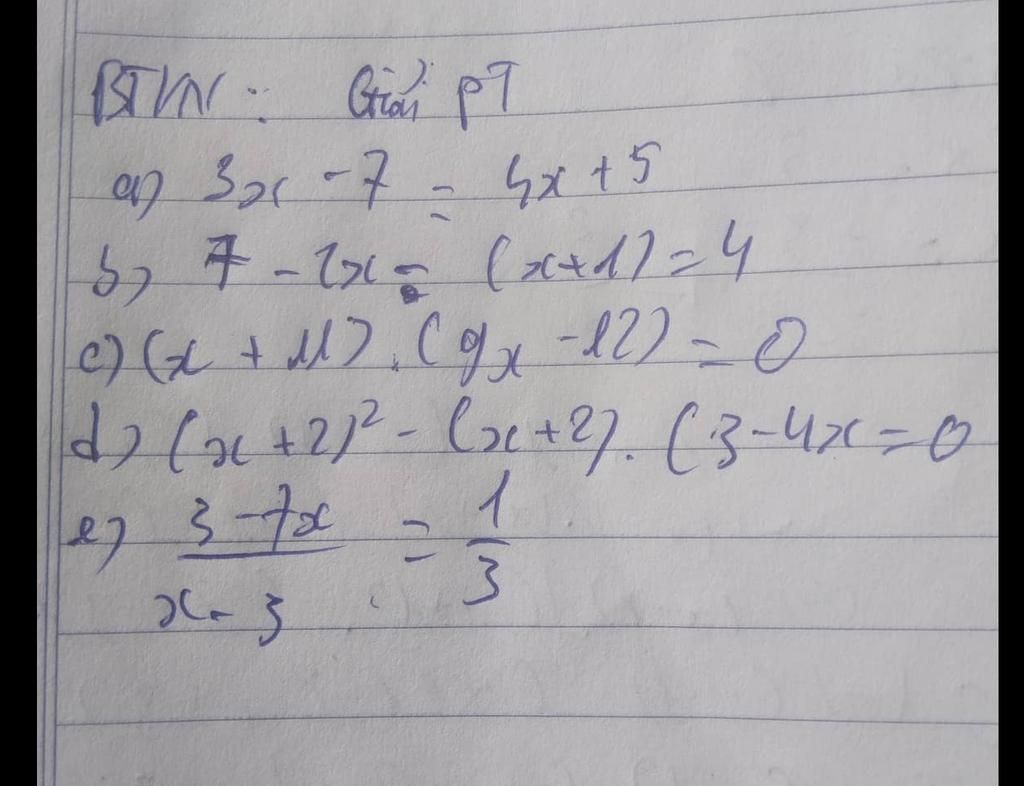 BTVN : Giải PT
a) 3x - 7 = 4x + 5
b) 7 - 2x = (x+1) = 4
c) (x + 11) . (9x - 12) = 0
d) (x + 2)² - (x + 2) . (3 - 4x = 0
e) 3 - 7x / x - 3 = 1 / 3